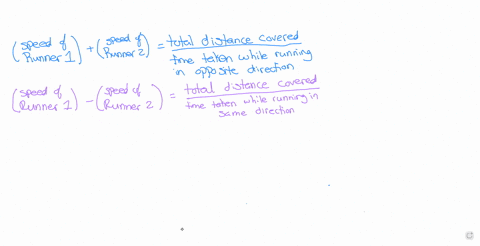 (speed of Runner 1) + (speed of Runner 2) = total distance covered / time taken while running in opposite direction
(speed of Runner 1) - (speed of Runner 2) = total distance covered / time taken while running in same direction